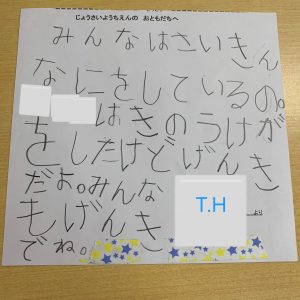 じょうさいようちえんの おともだちへ
みんなはさいきん
なにをしているの。
はきのうけが
をしたけどげんき
だよ。みんな
もげんき
でね。
T.H
より